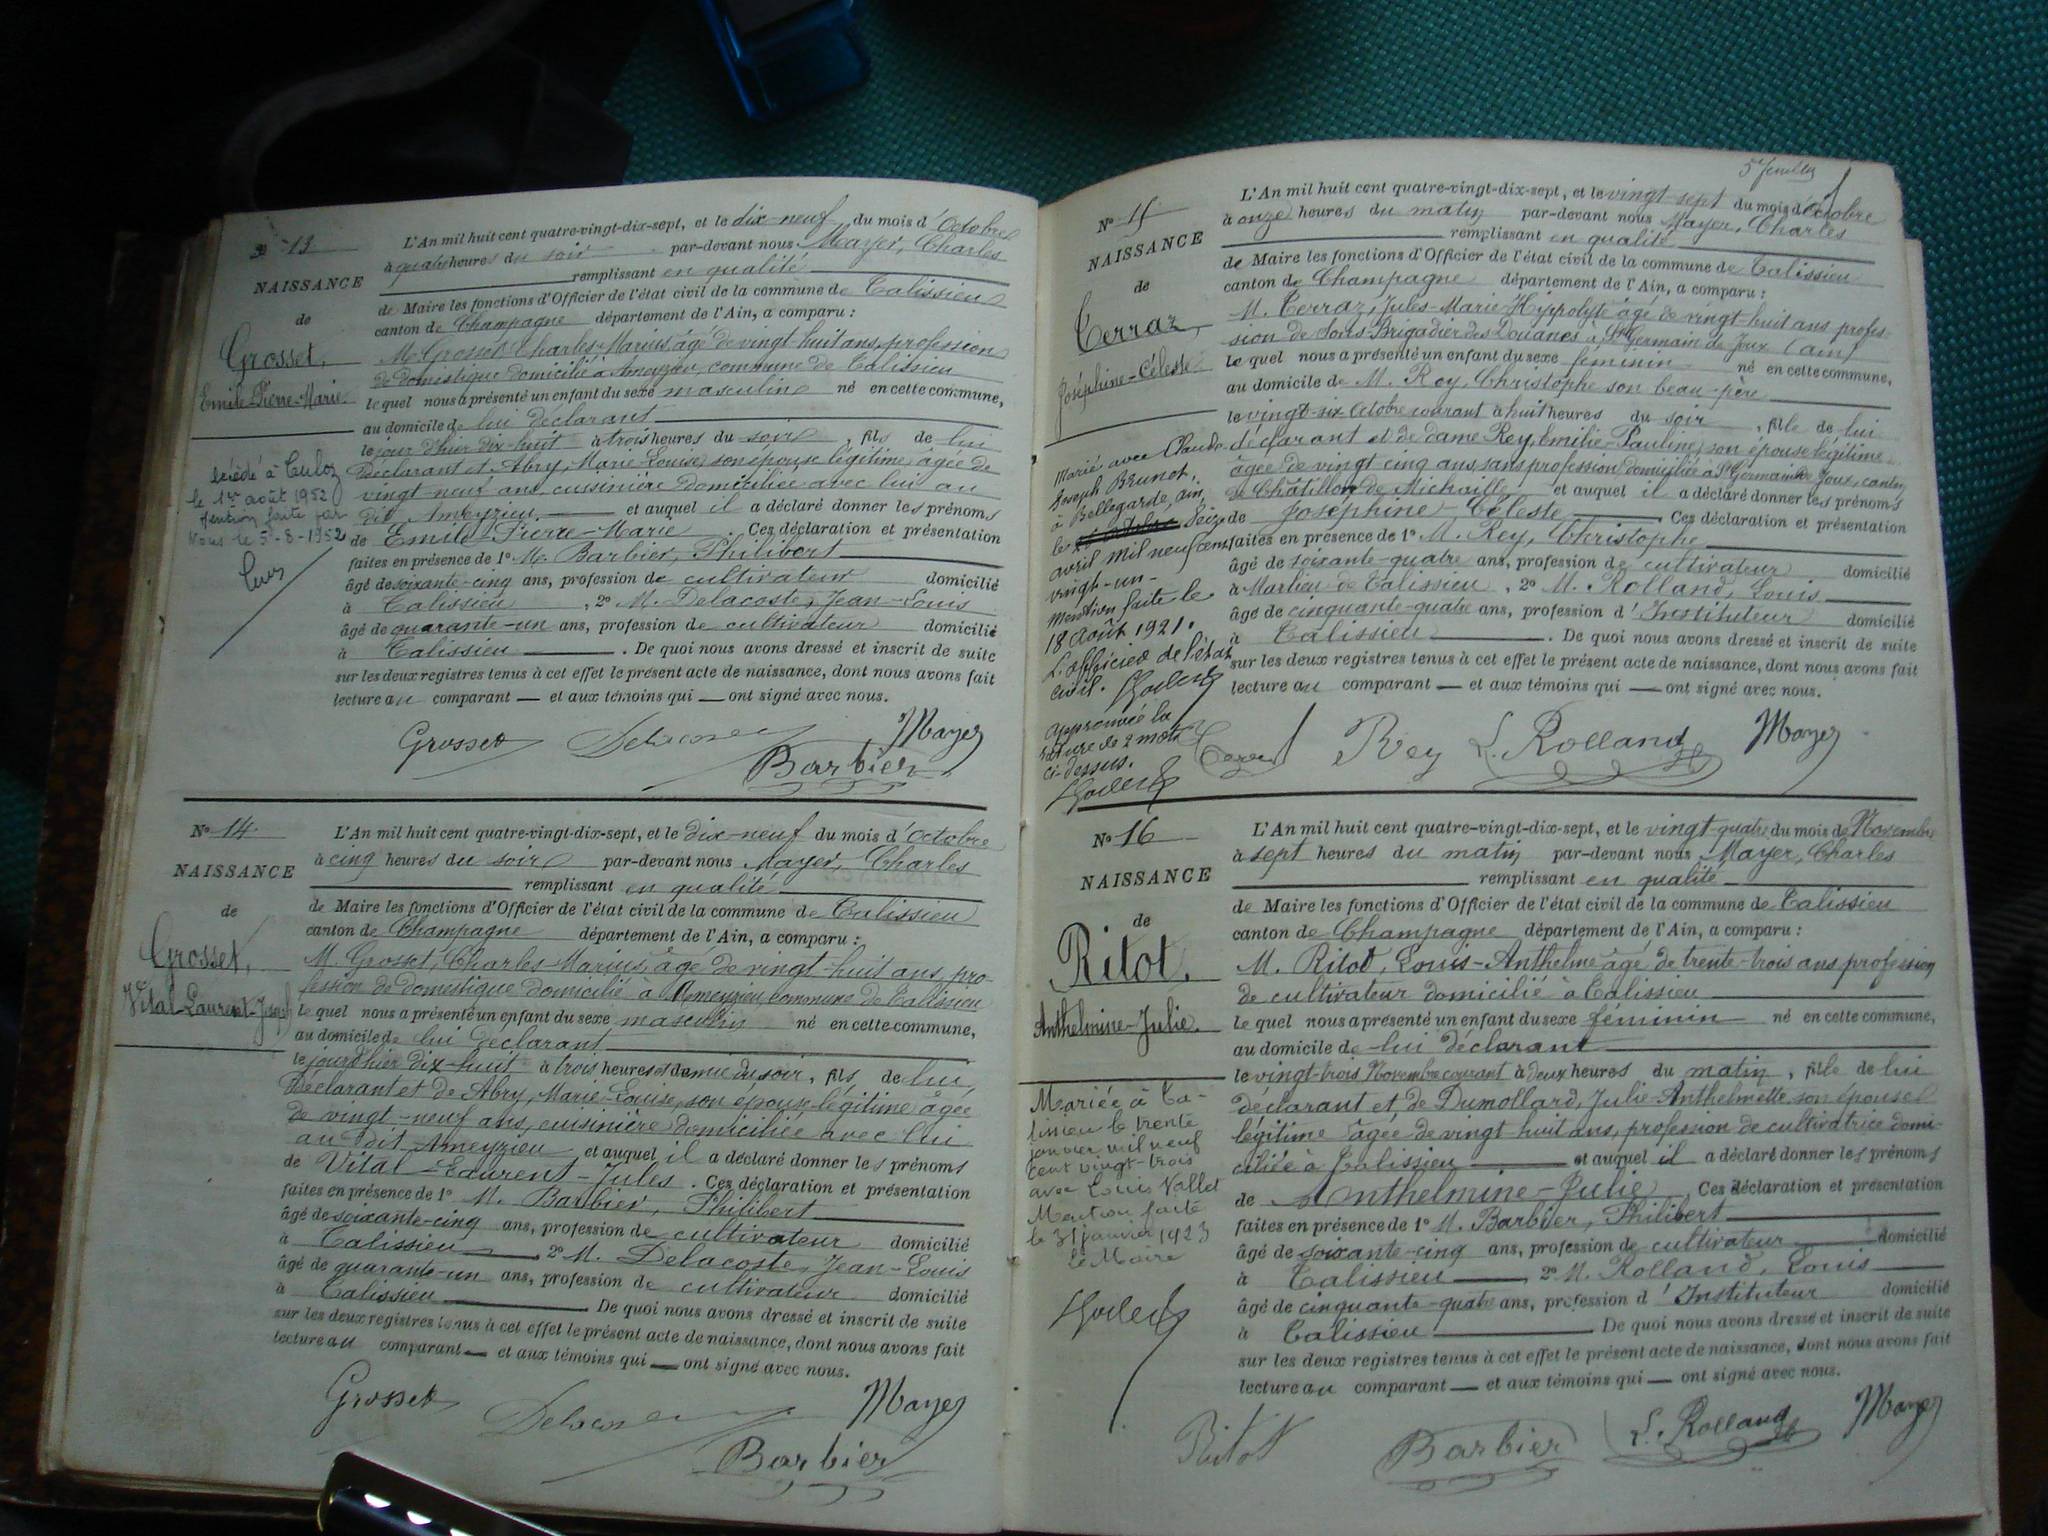 No 13
NAISSANCE
de
Grosset,
Emile-Pierre-Marie
décédé à Culoz
le 1er août 1952
Mention faite par
Nous le 5-8-1952
L'An mil huit cent quatre-vingt-dix-sept, et le dix-neuf du mois d'Octobre
à quatre heures du soir par-devant nous Mayer, Charles
remplissant en qualité
de Maire les fonctions d'Officier de l'état civil de la commune de Talissieu
canton de Champagne département de l'Ain, a comparu :
M. Grosset Charles-Marius, âgé de vingt-huit ans, profession
de domestique domicilié à Ameyzieu, commune de Talissieu
lequel nous a présenté un enfant du sexe masculin né en cette commune,
au domicile de lui déclarant
le jour d'hier dix-huit à trois heures du soir, fils de lui
déclarant et Abry, Marie-Louise, son épouse légitime, âgée de
vingt-neuf ans, cuisinière domiciliée avec lui au
dit Ameyzieu et auquel il a déclaré donner les prénoms
de Emile-Pierre-Marie. Ces déclaration et présentation
faites en présence de 1° M. Barbier, Philibert
âgé de soixante-cinq ans, profession de cultivateur domicilié
à Talissieu, 2° M. Delacoste, Jean-Louis
âgé de quarante-un ans, profession de cultivateur domicilié
à Talissieu. De quoi nous avons dressé et inscrit de suite
sur les deux registres tenus à cet effet le présent acte de naissance, dont nous avons fait
lecture au comparant — et aux témoins qui — ont signé avec nous.
Grosset Delacoste Mayer
Barbier
No 14
NAISSANCE
de
Grosset,
Vital-Laurent-Joseph
L'An mil huit cent quatre-vingt-dix-sept, et le dix-neuf du mois d'octobre
à cinq heures du soir par-devant nous Mayer, Charles
remplissant en qualité
de Maire les fonctions d'Officier de l'état civil de la commune de Talissieu
canton de Champagne département de l'Ain, a comparu :
M. Grosset, Charles-Marius, âgé de vingt-huit ans, pro-
fession de domestique domicilié à Ameyzieu, commune de Talissieu
lequel nous a présenté un enfant du sexe masculin né en cette commune,
au domicile de lui déclarant
le jour d'hier dix-huit à trois heures et demie du soir, fils de lui,
déclarant et de Abry, Marie-Louise, son épouse légitime âgée
de vingt-neuf ans, cuisinière domiciliée avec lui
au dit Ameyzieu et auquel il a déclaré donner les prénoms
de Vital-Laurent-Jules. Ces déclaration et présentation
faites en présence de 1° M. Barbier, Philibert
âgé de soixante-cinq ans, profession de cultivateur domicilié
à Talissieu, 2° M. Delacoste, Jean-Louis
âgé de quarante-un ans, profession de cultivateur domicilié
à Talissieu. De quoi nous avons dressé et inscrit de suite
sur les deux registres tenus à cet effet le présent acte de naissance, dont nous avons fait
lecture au comparant — et aux témoins qui — ont signé avec nous.
Grosset Delacoste Mayer
Barbier
5e feuillet
No 15
NAISSANCE
de
Terraz,
Joséphine-Céleste
Marié avec Claude
Joseph Brunot,
à Bellegarde, ain,
le Seize
avril mil neuf cent
vingt-un-
Mention faite le
18 Août 1921.
L'officier de l'état
civil.
approuvée la
rature de 2 mots
ci-dessus.
L'An mil huit cent quatre-vingt-dix-sept, et le vingt-sept du mois d'Octobre
à onze heures du matin par-devant nous Mayer, Charles
remplissant en qualité
de Maire les fonctions d'Officier de l'état civil de la commune de Talissieu
canton de Champagne département de l'Ain, a comparu :
M. Terraz, Jules-Marie-Hippolyte âgé de vingt-huit ans, profes-
sion de Sous-Brigadier des Douanes à St Germain de Joux (ain)
lequel nous a présenté un enfant du sexe féminin né en cette commune,
au domicile de M. Rey, Christophe son beau-père
le vingt-six Octobre courant à huit heures du soir, fille de lui
déclarant et de dame Rey, Emilie-Pauline, son épouse légitime
âgée de vingt cinq ans, sans profession domiciliée à St Germain de Joux, canton
de Châtillon de Michaille et auquel il a déclaré donner les prénoms
de Joséphine, Céleste Ces déclaration et présentation
faites en présence de 1° M. Rey, Christophe
âgé de soixante-quatre ans, profession de cultivateur domicilié
à Marlieu de Talissieu, 2° M. Rolland, Louis
âgé de cinquante-quatre ans, profession d'Instituteur domicilié
à Talissieu. De quoi nous avons dressé et inscrit de suite
sur les deux registres tenus à cet effet le présent acte de naissance, dont nous avons fait
lecture au comparant — et aux témoins qui — ont signé avec nous.
Terraz Rey L. Rolland Mayer
No 16
NAISSANCE
de
Ritot,
Anthelmine-Julie.
Mariée à Ta-
lissieu le trente
janvier mil neuf
cent vingt-trois
avec Louis Vallet
Mention faite
le 31 janvier 1923
le Maire
L'An mil huit cent quatre-vingt-dix-sept, et le vingt-quatre du mois de Novembre
à sept heures du matin par-devant nous Mayer, Charles
remplissant en qualité
de Maire les fonctions d'Officier de l'état civil de la commune de Talissieu
canton de Champagne département de l'Ain, a comparu :
M. Ritot, Louis-Anthelme âgé de trente-trois ans, profession
de cultivateur domicilié à Talissieu
lequel nous a présenté un enfant du sexe féminin né en cette commune,
au domicile de lui déclarant
le vingt-trois Novembre courant à deux heures du matin, fille de lui
déclarant et de Dumollard, Julie-Anthelmette son épouse
légitime âgée de vingt huit ans, profession de cultivatrice domi-
ciliée à Talissieu et auquel il a déclaré donner les prénoms
de Anthelmine-Julie. Ces déclaration et présentation
faites en présence de 1° M. Barbier, Philibert
âgé de soixante-cinq ans, profession de cultivateur domicilié
à Talissieu, 2° M. Rolland, Louis
âgé de cinquante-quatre ans, profession d'Instituteur domicilié
à Talissieu De quoi nous avons dressé et inscrit de suite
sur les deux registres tenus à cet effet le présent acte de naissance, dont nous avons fait
lecture au comparant — et aux témoins qui — ont signé avec nous.
Ritot Barbier L. Rolland Mayer